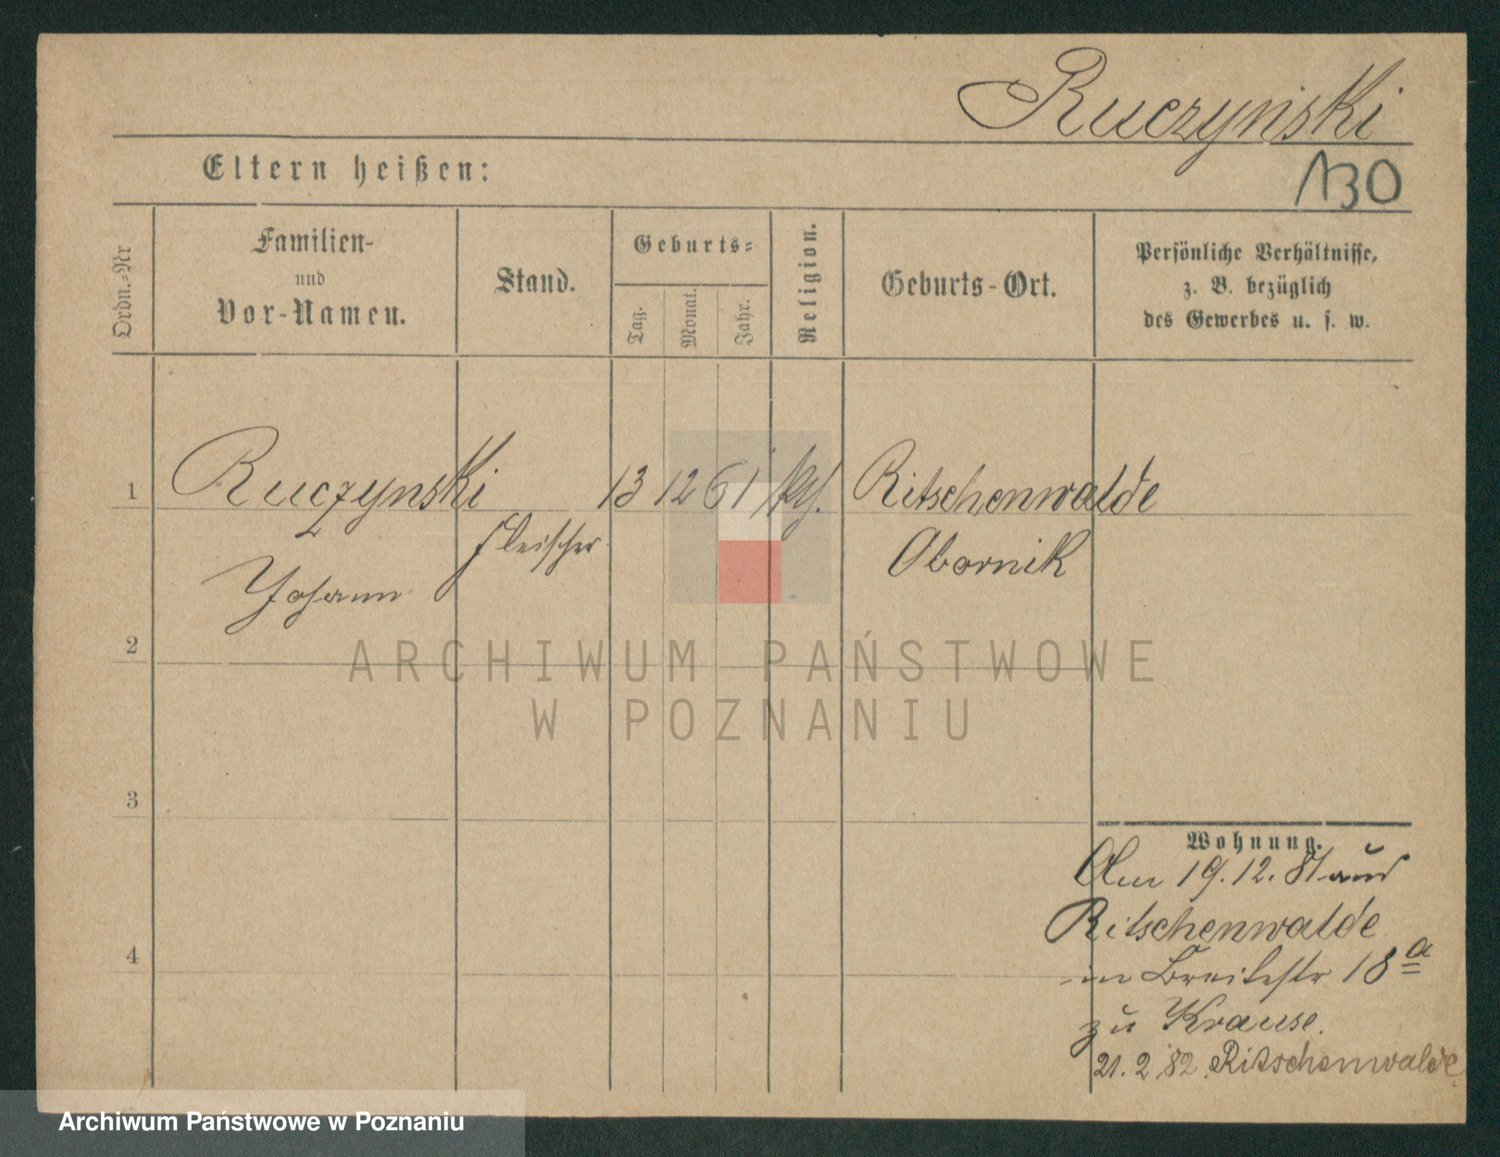 Ruczyński
130
Eltern heißen:
Ordn.-Nr
Familien-
und
Vor-Namen.
Stand.
Geburts-
Tag.
Monat.
Jahr.
Religion.
Geburts-Ort.
Persönliche Verhältnisse,
z. B. bezüglich
des Gewerbes u. s. w.
1
Ruczynski
Johann
Fleischer
13 12 61
Ritschenwalde
Obornik
2
3
4
ARCHIWUM PAŃSTWOWE
W POZNANIU
Wohnung.
Am 19. 12. 81 aus
Ritschenwalde
in Breitestr 18a
zu Krause.
21. 2 82 Ritschenwalde
Archiwum Państwowe w Poznaniu